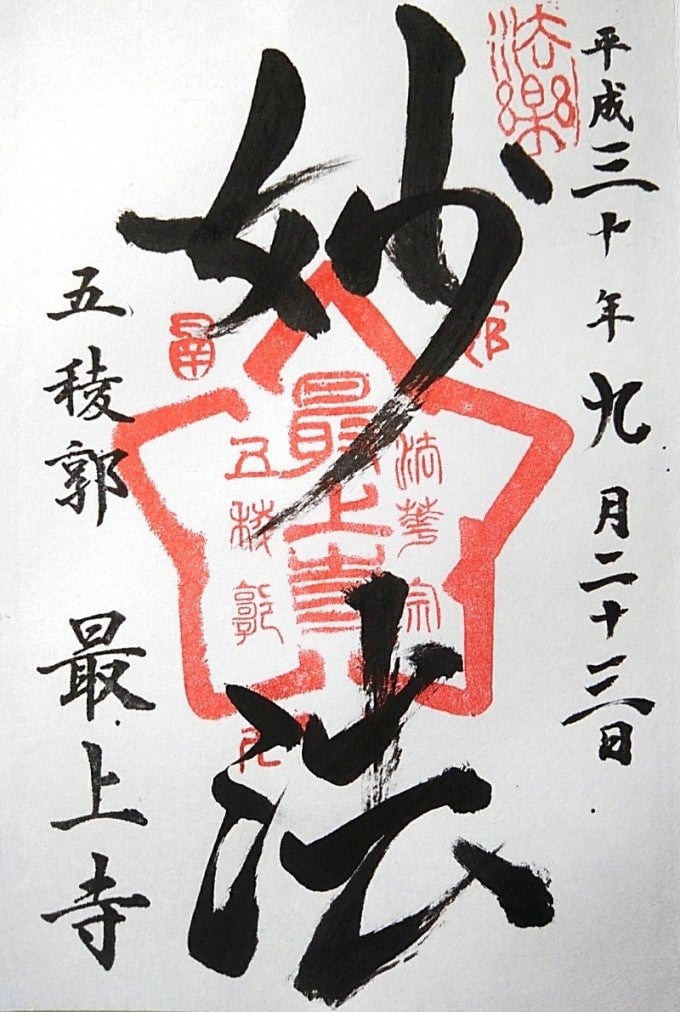 平成三十年九月二十三日
法楽
妙法
法華宗
最上寺
五稜郭
五稜郭 最上寺